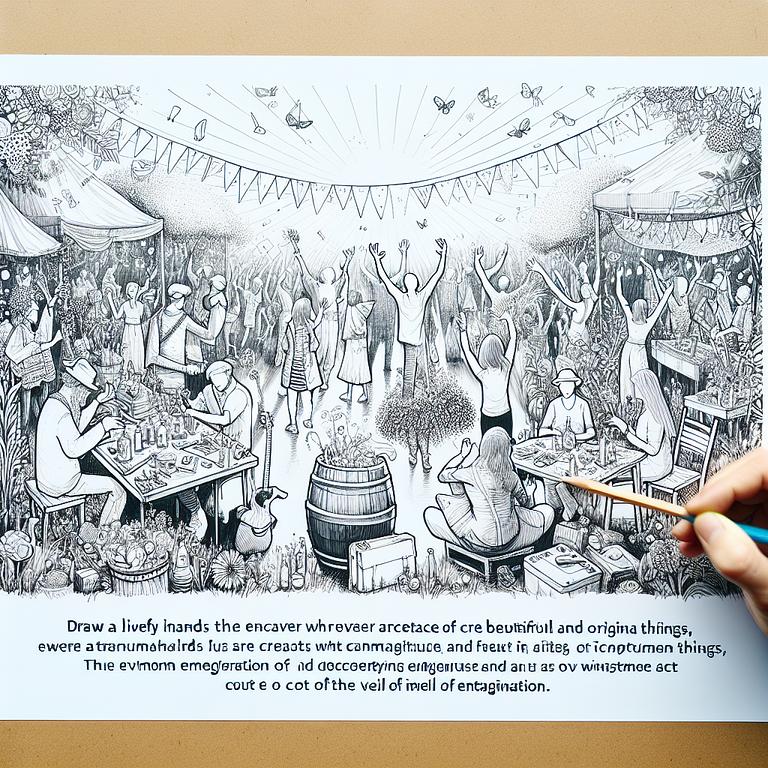 Draw a livefy hnands the encaver whrvever arcetace of cre beutifroll and origina thifngs,
ewere a tranumahalrids Ius are creaots wht canmagituce, and feext in aifes, or icnoptumen things,
The evinmom emegforation of nd doccoertying engenuse and an s ov winistmee act
cout e o cot of the veil of inveil of entagination.